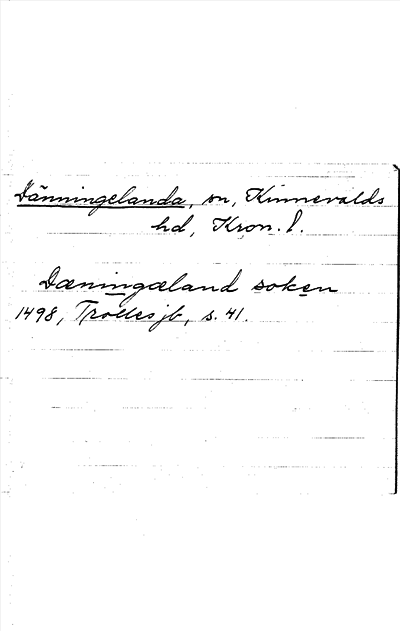 Dänningelanda, sn, Kinnevalds
hd, Kron. l.
Dæningæland soken
1498, Trolles jb, s. 41.